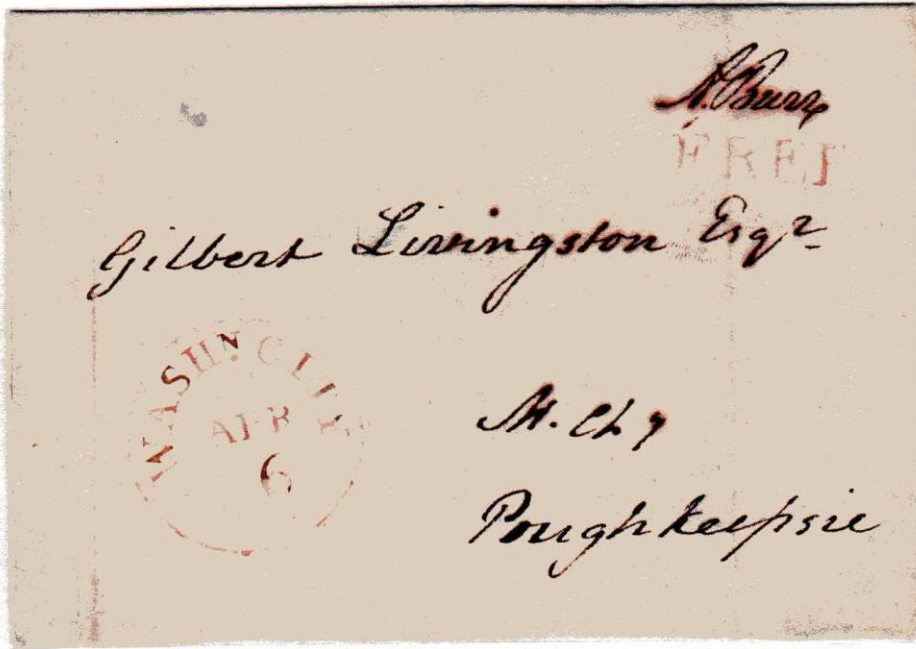 A. Burr
FREE
Gilbert Livingston Esqr
WASHN. CITY
APR
6
Poughkeepsie